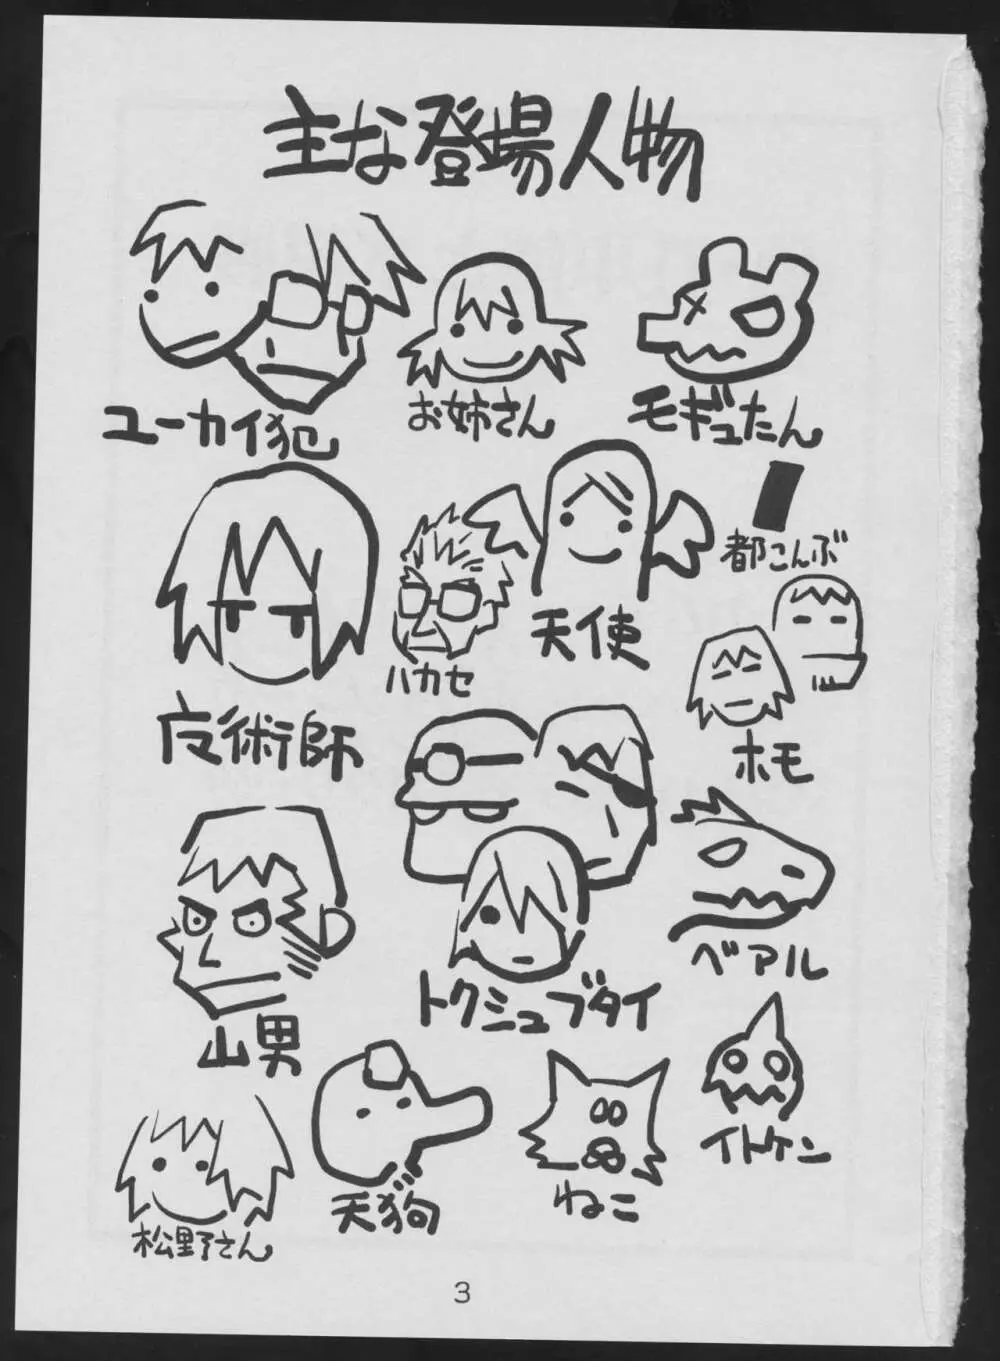 主な登場人物
ユーカイ犯
お姉さん
モギュたん
都こんぶ
魔術師
ハカセ
天使
ホモ
山男
トクシュブタイ
ベアル
松野さん
天狗
ねこ
イトケン
3